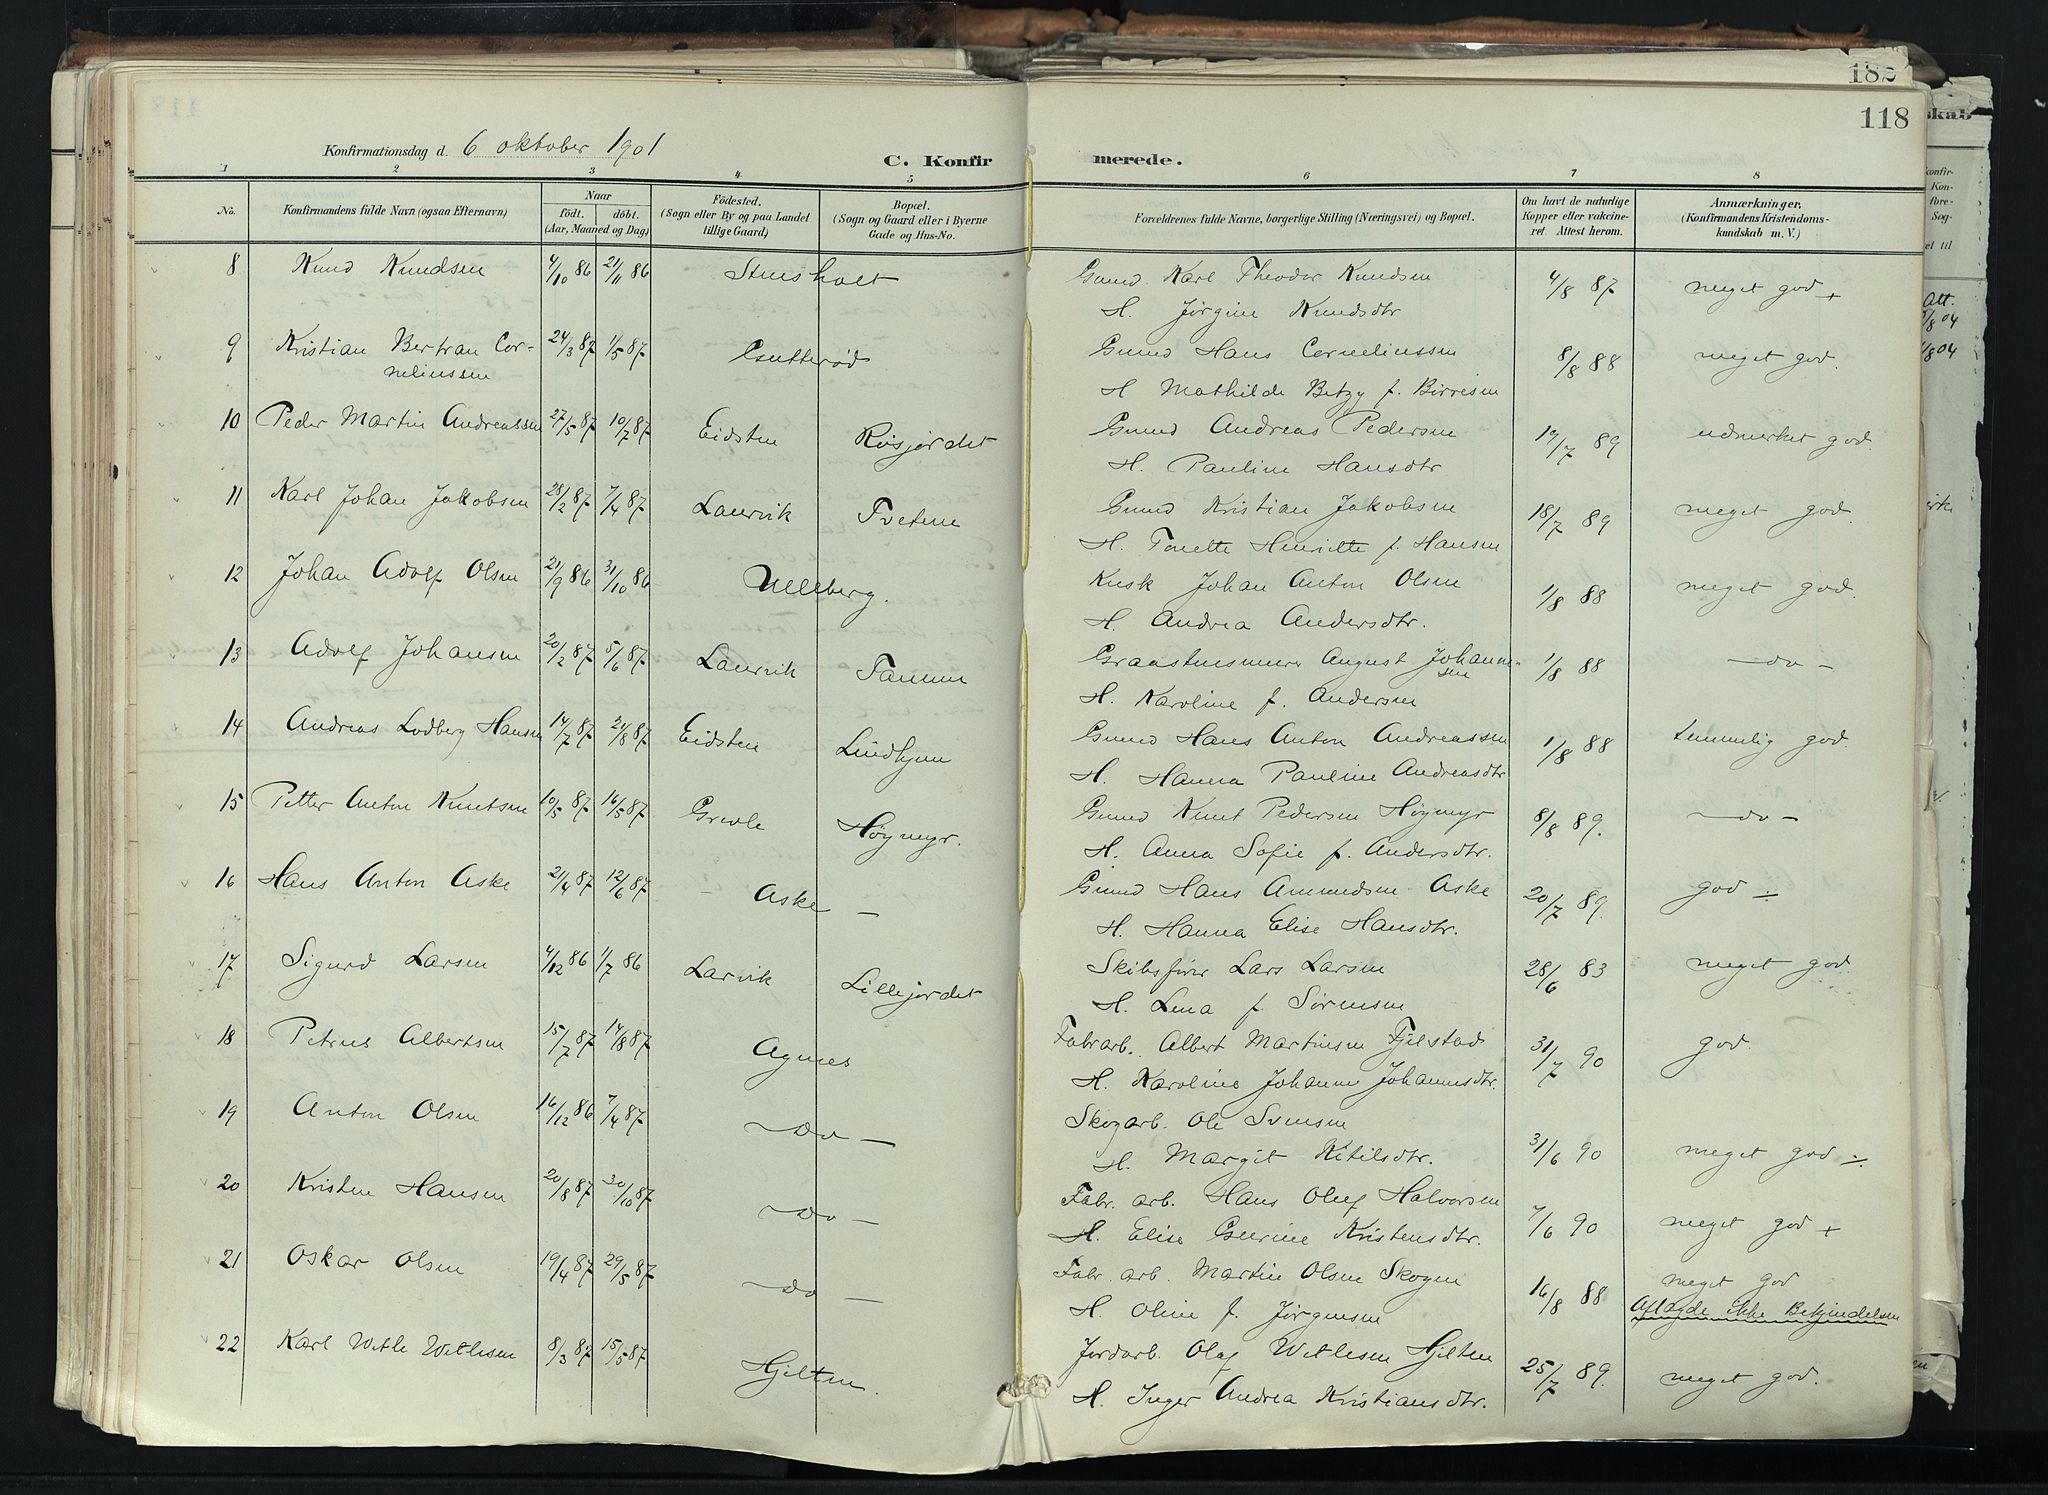 182
118
Konfirmationsdag d. 6 oktober 1901
C. Konfirmerede.
1 2 3 4 5 6 7 8
No.
Konfirmandens fulde Navn (ogsaa Efternavn)
Naar
födt. döbt.
(Aar, Maaned og Dag)
Födested.
(Sogn eller By og paa Landet
tillige Gaard)
Bopæl.
(Sogn og Gaard eller i Byerne
Gade og Hus-No.
Forældrenes fulde Navne, borgerlige Stilling (Næringsvei) og Bopæl.
Om havt de naturlige
Kopper eller vakcine-
ret. Attest herom.
Anmærkninger,
(Konfirmandens Kristendoms-
kundskab m. V.)
8 Knud Knudsen 4/10 86 21/11 86 Stensholt Gmd. Karl Theodor Knudsen 4/8 87 meget god +
H. Jørgine Knudsdtr
9 Kristian Bertran Cor- 24/3 87 1/5 87 Gutterød Gmd Hans Corneliussen 8/8 88 meget god.
neliussen
H Mathilde Betzy f. Børresen
10 Peder Martin Andreassen 27/5 87 10/7 87 Eidsten Røisjordet Gmd Andreas Pedersen 19/7 89 udmerket god.
H. Pauline Hansdtr
11 Karl Johan Jakobsen 28/2 87 7/4 87 Laurvik Tvetene Gmd Kristian Jakobsen 18/7 89 meget god.
H. Tonette Henriette f. Hansen
12 Johan Adolf Olsen 21/9 86 31/10 86 Ulleberg. Kusk Johan Anton Olsen 1/8 88 meget god.
H. Andrea Andersdtr.
13 Adolf Johansen 20/2 87 5/6 87 Laurvik Tanum Graastensmurer August Johanne- 1/8 88 — do —
sen
H. Karoline f. Andersen
14 Andreas Lodberg Hansen 14/7 87 21/8 87 Eidsten Lindhjem Gmd Hans Anton Andreassen 1/8 88 temmelig god.
H. Hanna Pauline Andreasdtr
15 Petter Anton Knutsen 10/5 87 16/5 87 Grevle Høymyr. Gmd Knut Pedersen Høymyr 8/8 89. — do —
H. Anna Sofie f. Andersdtr.
16 Hans Anton Aske 21/4 87 12/6 87 — Aske — Gmd Hans Amundsen Aske 20/7 89. god ÷
H. Hanna Elise Hansdtr.
17 Sigurd Larsen 4/12 86 1/7 86 Larvik Lillejordet Skibsfører Lars Larsen 28/6 83 meget god
H. Lena f. Sørensen
18 Petrus Albertsen 15/7 87 14/8 87 Agnes Fabrarb. Albert Martinsen Fjelstad 31/7 90 god.
H. Karoline Johanne Johannesdtr.
19 Anton Olsen 16/12 86 7/4 87 — do — Skogarb. Ole Svensen
H. Margit Ketilsdtr. 31/6 90 meget god ÷
20 Kristen Hansen 20/8 87 30/10 87 — do — Fabr. arb. Hans Oluf Halvorsen 7/6 90 meget god +
H. Elise Gurine Kristensdtr.
21 Oskar Olsen 19/4 87 29/5 87 — do — Fabr. arb. Martin Olsen Skogen 16/8 88 meget god
H. Oline f. Jørgensen Aflagde ikke Bekjendelsen
22 Karl Wetle Wetlesen 8/3 87 15/5 87 Hjelten. Jordarb. Olaf Wetlesen Hjelten 25/7 89. meget god.
H. Inger Andrea Kristiansdtr.